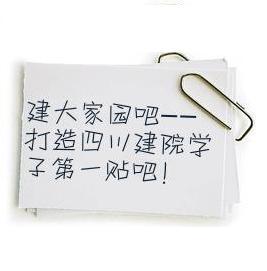 建大家园吧——
打造四川建院学
子第一贴吧!